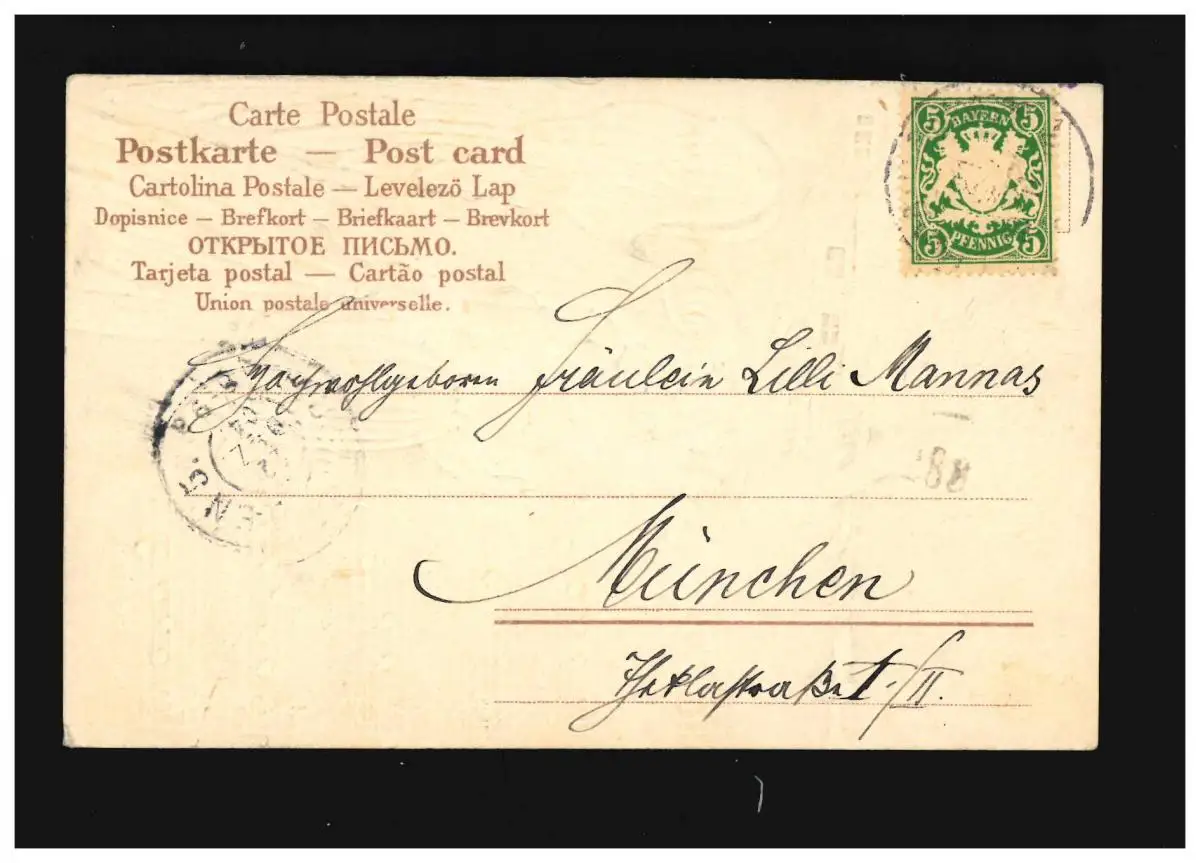 Carte Postale
Postkarte — Post card
Cartolina Postale — Levelező Lap
Dopisnice — Brefkort — Briefkaart — Brevkort
ОТКРЫТОЕ ПИСЬМО.
Tarjeta postal — Cartão postal
Union postale universelle.
5 BAYERN 5
5 PFENNIG 5
Hochwohlgeboren Fräulein Lilli Mannas
88
München
Theklastraße 1./II.